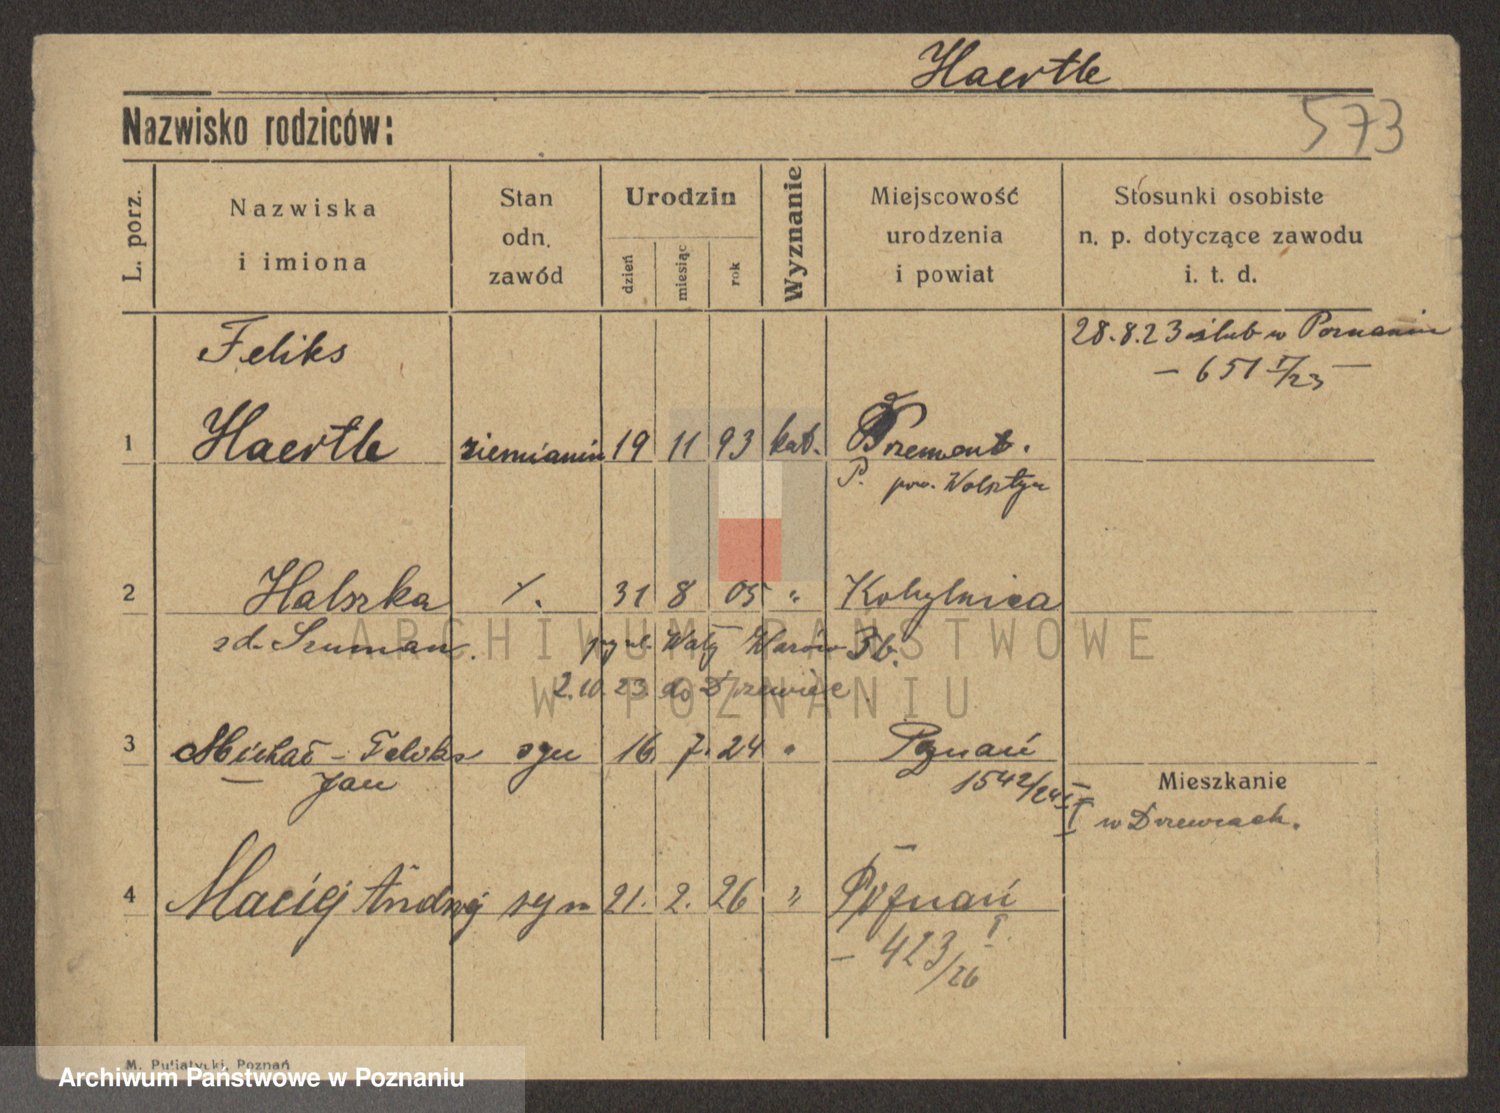 Haertle
573
Nazwisko rodziców:
L. porz.
Nazwiska
i imiona
Stan
odn.
zawód
Urodzin
dzień
miesiąc
rok
Wyznanie
Miejscowość
urodzenia
i powiat
Stosunki osobiste
n. p. dotyczące zawodu
i. t. d.
Feliks
28.8.23 ślub w Poznaniu
– 651 I/23 –
1 Haertle ziemianin 19 11 93 kat. Przement.
P. pow. Wolsztyn
2 Halszka ⁒ 31 8 05 " Kobylnica
zd. Szuman. Wały Wazów 3b.
2.10.23 do Drzewiec.
3 Michał – Feliks syn 16. 7. 24 " Poznań
– Jan
1542/24 II
Mieszkanie
w Drzewcach.
4 Maciej Andrzej syn 21. 2. 26 " Poznań
– 423/26 I.
ARCHIWUM PAŃSTWOWE
W POZNANIU
M. Putiatycki, Poznań
Archiwum Państwowe w Poznaniu